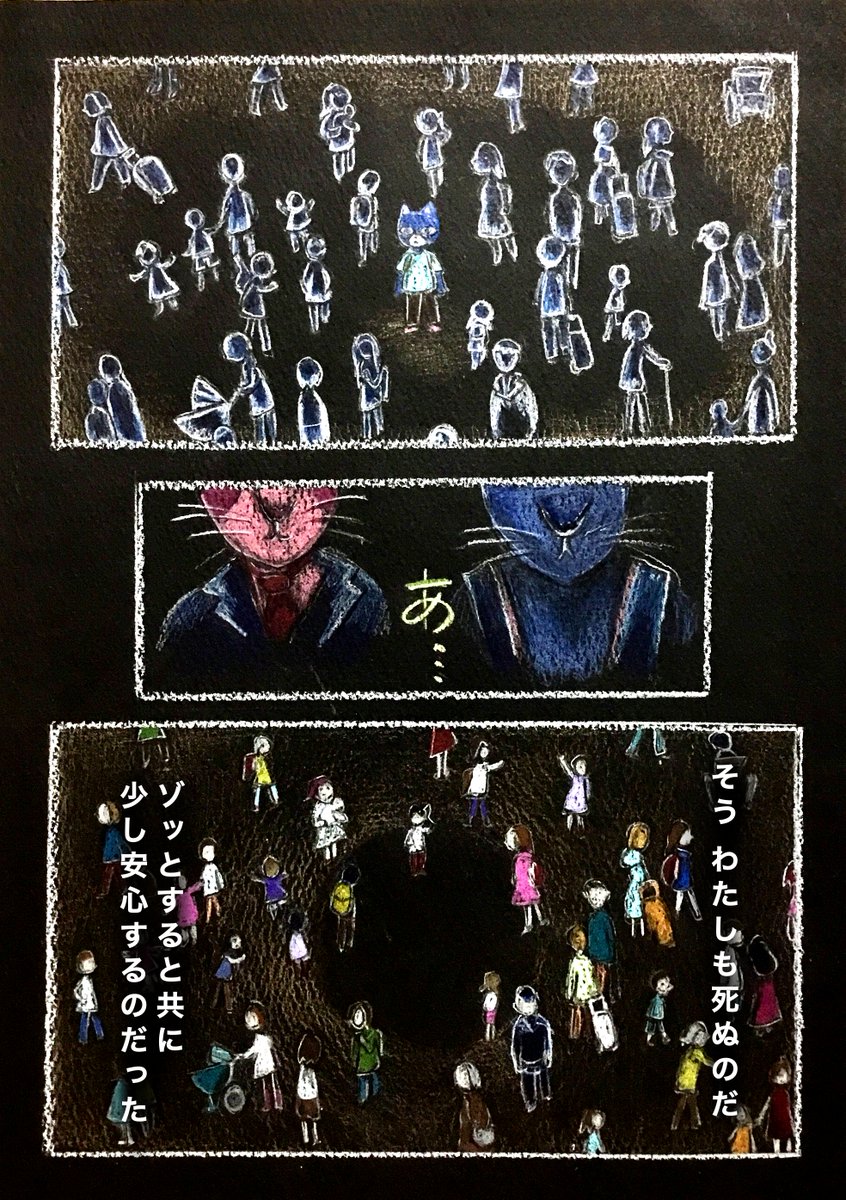 あ…
そう わたしも死ぬのだ
ゾッとすると共に
少し安心するのだった